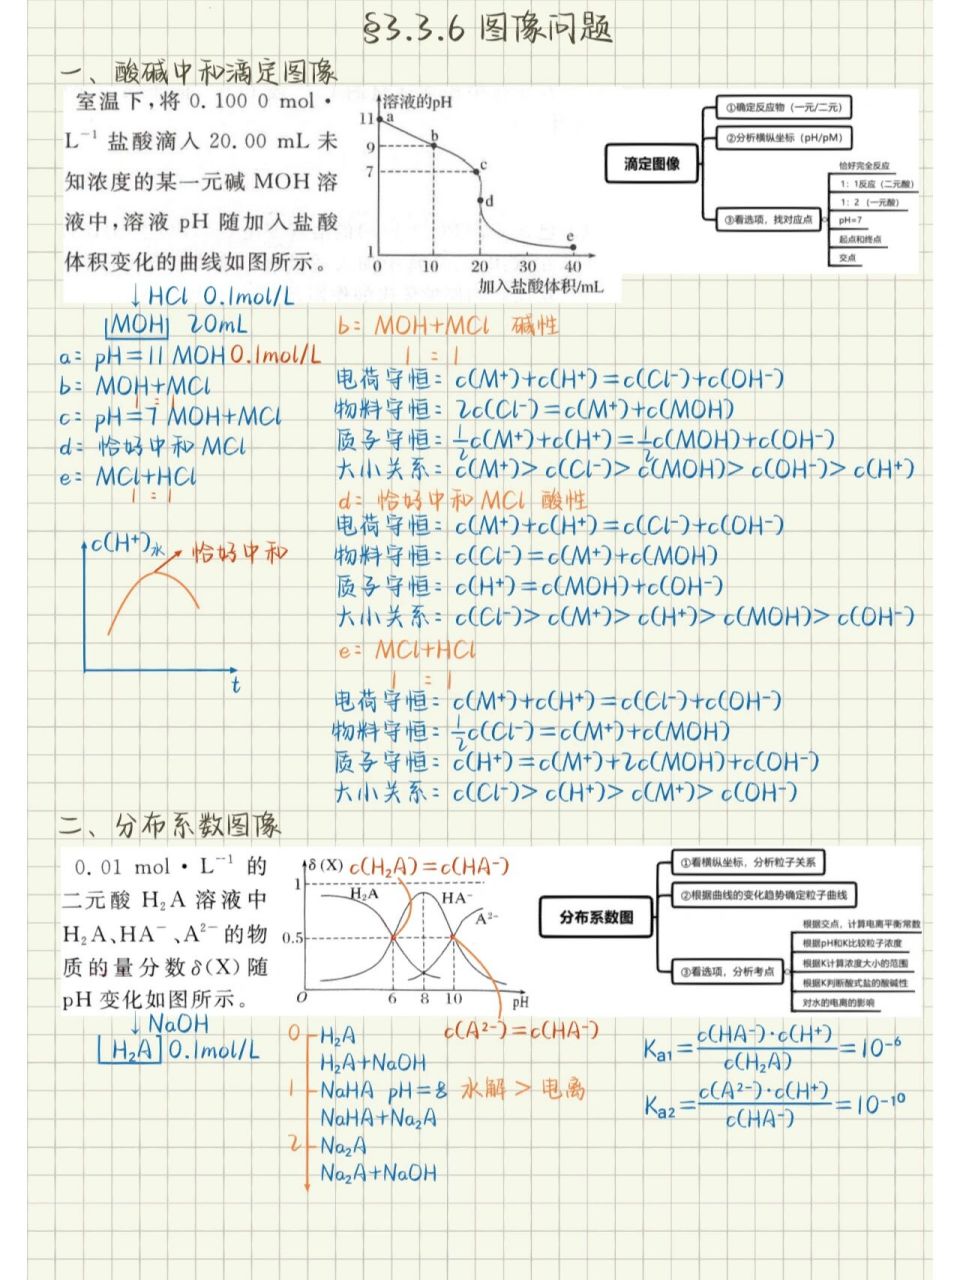 §3.3.6 图像问题
一、酸碱中和滴定图像
室温下,将 0.100 0 mol·
L⁻¹ 盐酸滴入 20.00 mL 未
知浓度的某一元碱 MOH 溶
液中,溶液 pH 随加入盐酸
体积变化的曲线如图所示。
溶液的pH
11 a
9 b
7 c
d
e
1
0 10 20 30 40
加入盐酸体积/mL
滴定图像
①确定反应物(一元/二元)
②分析横纵坐标(pH/pM)
③看选项,找对应点
恰好完全反应
1:1反应(二元酸)
1:2(一元酸)
pH=7
起点和终点
交点
↓HCl 0.1mol/L
MOH 20mL
a: pH=11 MOH 0.1mol/L
b: MOH+MCl
1 : 1
c: pH=7 MOH+MCl
d: 恰好中和 MCl
e: MCl+HCl
1 : 1
c(H⁺)水
恰好中和
t
b: MOH+MCl 碱性
1 : 1
电荷守恒: c(M⁺)+c(H⁺)=c(Cl⁻)+c(OH⁻)
物料守恒: 2c(Cl⁻)=c(M⁺)+c(MOH)
质子守恒: ½c(M⁺)+c(H⁺)=½c(MOH)+c(OH⁻)
大小关系: c(M⁺)>c(Cl⁻)>c(MOH)>c(OH⁻)>c(H⁺)
d: 恰好中和 MCl 酸性
电荷守恒: c(M⁺)+c(H⁺)=c(Cl⁻)+c(OH⁻)
物料守恒: c(Cl⁻)=c(M⁺)+c(MOH)
质子守恒: c(H⁺)=c(MOH)+c(OH⁻)
大小关系: c(Cl⁻)>c(M⁺)>c(H⁺)>c(MOH)>c(OH⁻)
e: MCl+HCl
1 : 1
电荷守恒: c(M⁺)+c(H⁺)=c(Cl⁻)+c(OH⁻)
物料守恒: ½c(Cl⁻)=c(M⁺)+c(MOH)
质子守恒: c(H⁺)=c(M⁺)+2c(MOH)+c(OH⁻)
大小关系: c(Cl⁻)>c(H⁺)>c(M⁺)>c(OH⁻)
二、分布系数图像
0.01 mol·L⁻¹ 的
二元酸 H₂A 溶液中
H₂A、HA⁻、A²⁻的物
质的量分数δ(X)随
pH 变化如图所示。
δ(X) c(H₂A)=c(HA⁻)
1
H₂A HA⁻
A²⁻
0.5
O 6 8 10 pH
c(A²⁻)=c(HA⁻)
分布系数图
①看横纵坐标,分析粒子关系
②根据曲线的变化趋势确定粒子曲线
③看选项,分析考点
根据交点,计算电离平衡常数
根据pH和K比较粒子浓度
根据K计算浓度大小的范围
根据K判断酸式盐的酸碱性
对水的电离的影响
↓NaOH
H₂A 0.1mol/L
0 H₂A
H₂A+NaOH
1 NaHA pH=8 水解 > 电离
NaHA+Na₂A
2 Na₂A
Na₂A+NaOH
Ka1=c(HA⁻)·c(H⁺)/c(H₂A)=10⁻⁶
Ka2=c(A²⁻)·c(H⁺)/c(HA⁻)=10⁻¹⁰